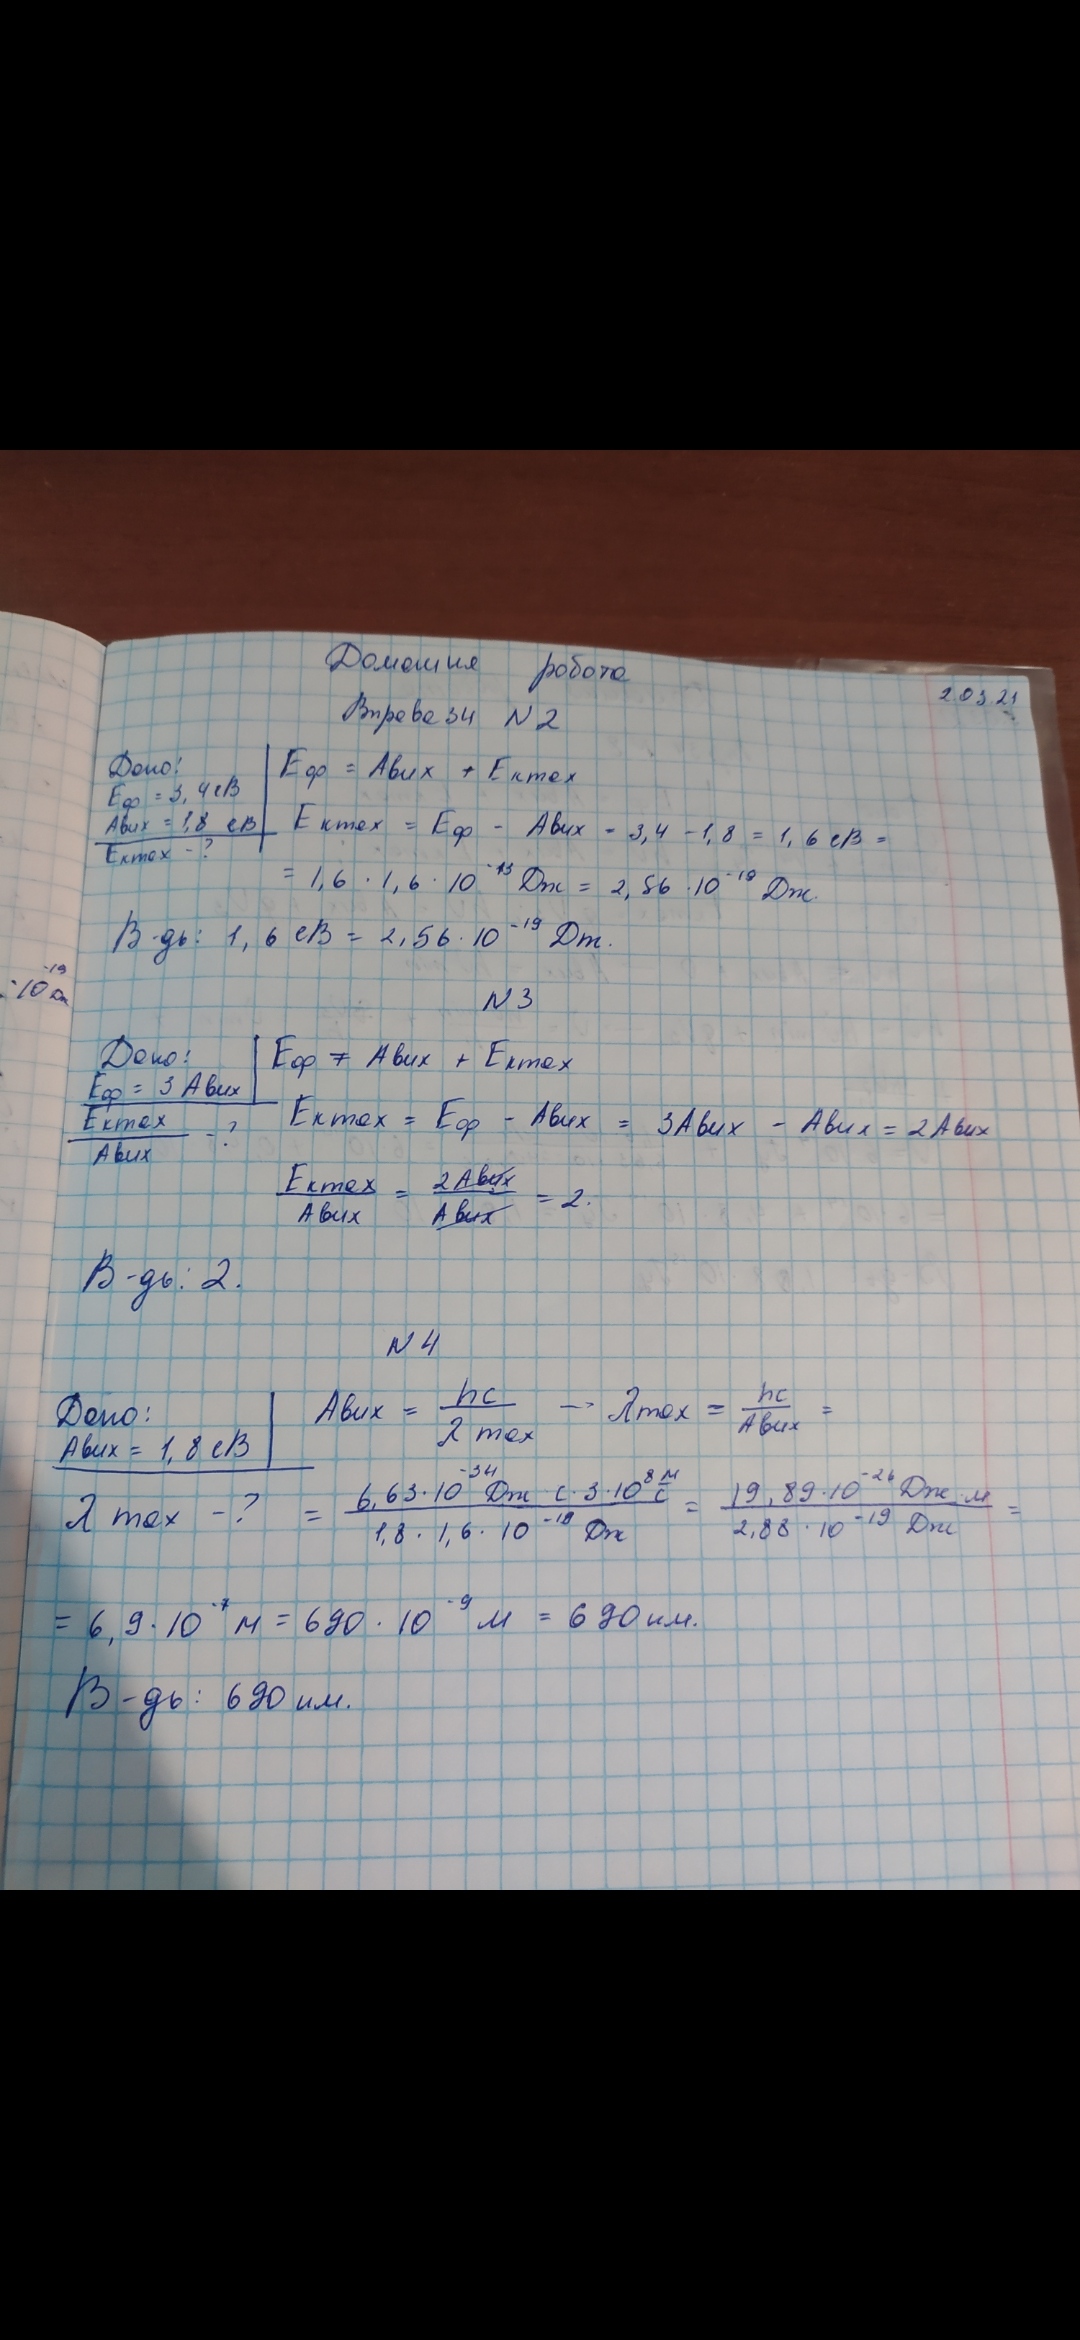 Домашня робота
2.03.21
Вправа 34 N2
Дано:
Eф = 3,4 еВ
Aвих = 1,8 еВ
Eкmax - ?
Eф = Aвих + Eкmax
Eкmax = Eф - Aвих = 3,4 - 1,8 = 1,6 еВ =
= 1,6 · 1,6 · 10⁻¹⁹ Дж = 2,56 · 10⁻¹⁹ Дж.
В-дь: 1,6 еВ = 2,56 · 10⁻¹⁹ Дж.
·10⁻¹⁹ Дж
N3
Дано:
Eф = 3 Aвих
Eкmax / Aвих - ?
Eф = Aвих + Eкmax
Eкmax = Eф - Aвих = 3Aвих - Aвих = 2Aвих
Eкmax / Aвих = 2Aвих / Aвих = 2.
В-дь: 2.
N4
Дано:
Aвих = 1,8 еВ
λ max - ?
Aвих = hc / λ max → λmax = hc / Aвих =
= 6,63·10⁻³⁴ Дж·с·3·10⁸ м/с / 1,8·1,6·10⁻¹⁹ Дж = 19,89·10⁻²⁶ Дж·м / 2,88·10⁻¹⁹ Дж =
= 6,9·10⁻⁷ м = 690·10⁻⁹ м = 690 нм.
В-дь: 690 нм.